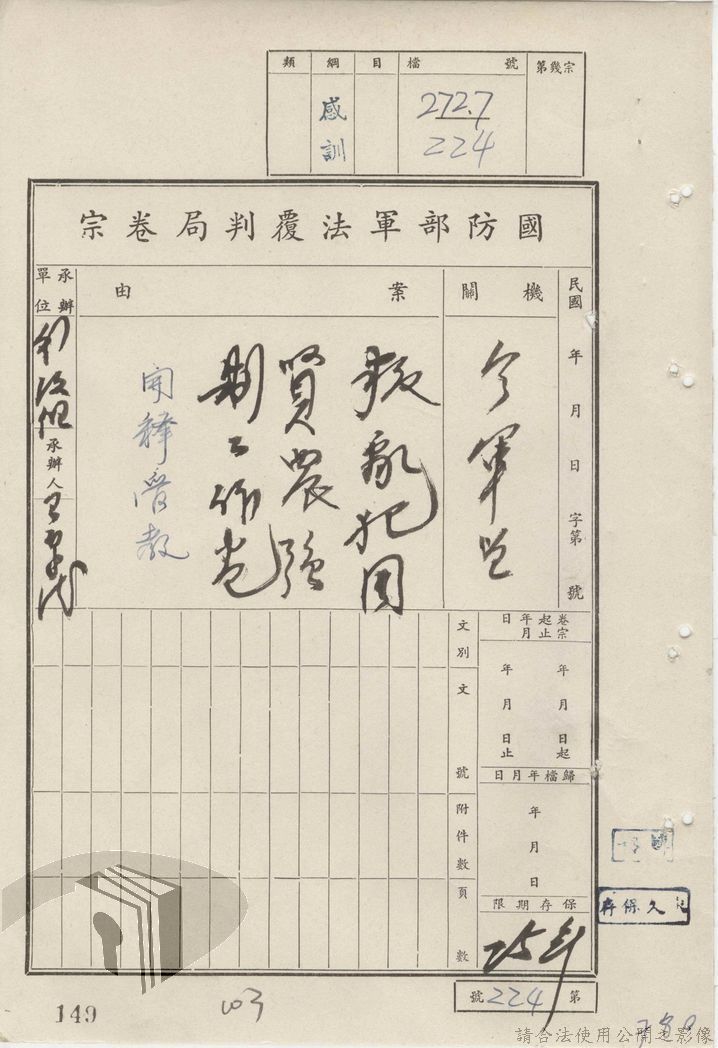 類 綱 目 檔號 第幾宗
感訓
272.7
224
國防部軍法覆判局卷宗
民國 年 月 日 字第 號
機關
案由
承辦單位
叛亂犯周
賢農強
制工作卷
開釋管教
承辦人
卷宗起止年月日
年 月 日起
年 月 日止
歸檔年月日
年 月 日
保存期限
25年
文別
文號
附件數
頁數
第224號
永久保存
149
103
請合法使用公開之影像